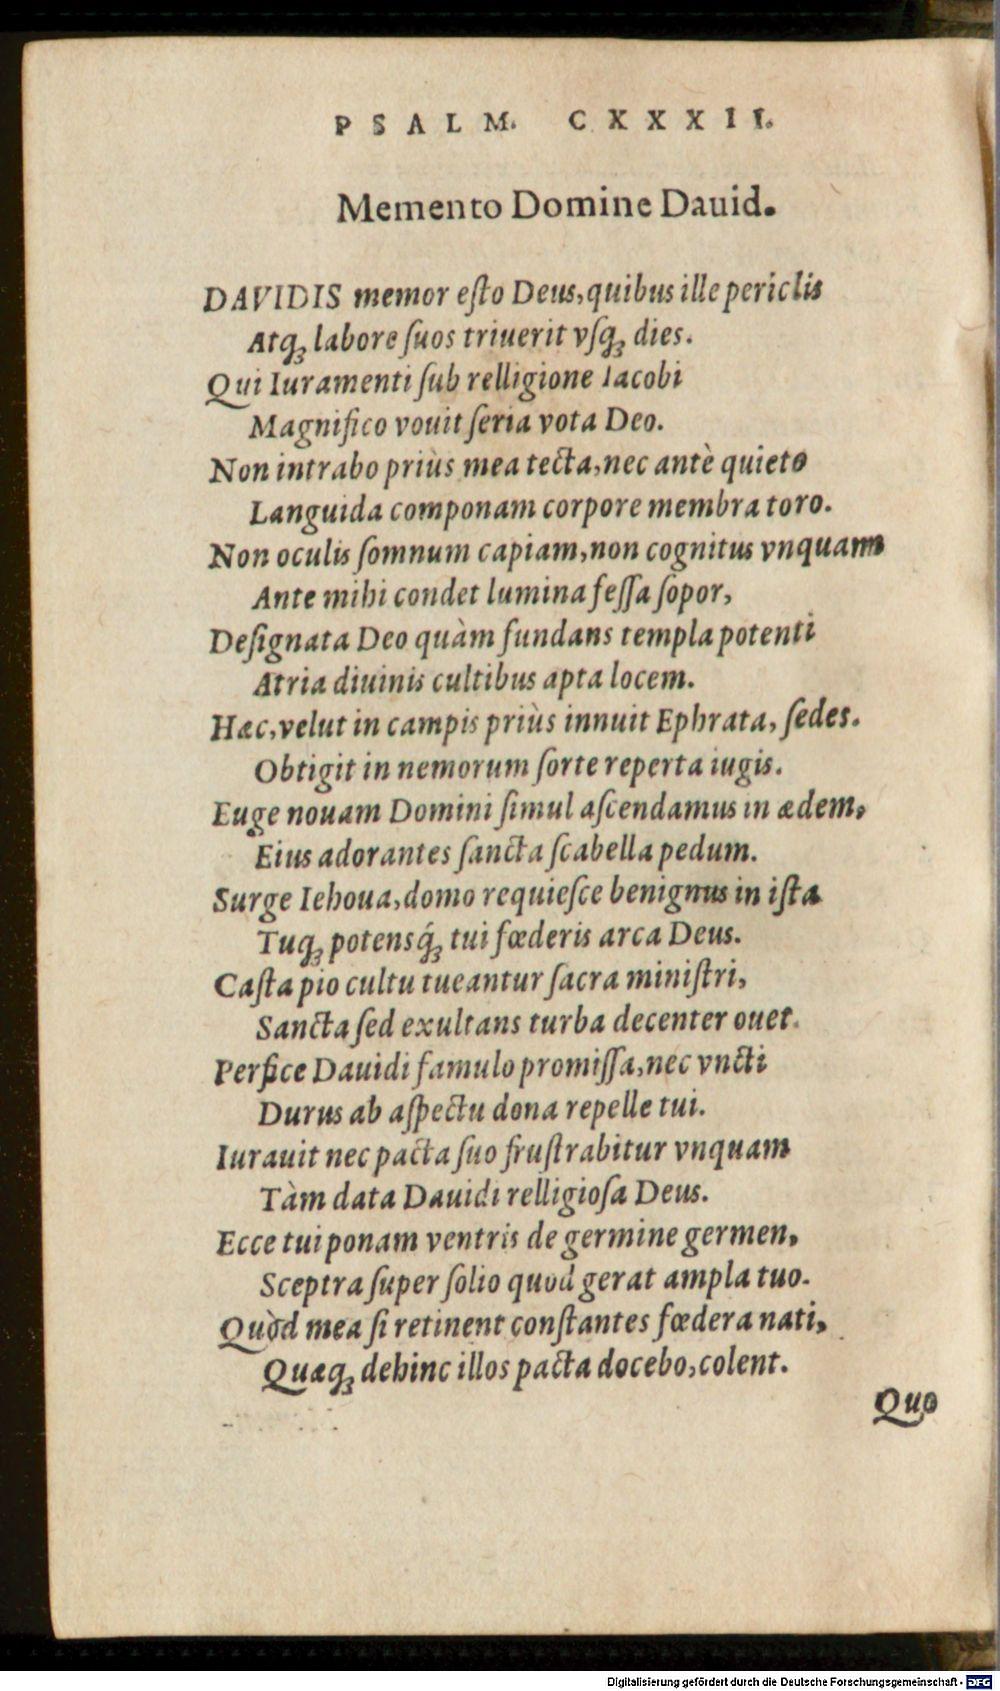 PSALM. CXXXII.
Memento Domine Dauid.
DAVIDIS memor eſto Deus, quibus ille periclis
Atq́ꝫ labore ſuos triuerit vſqꝫ dies.
Qui Iuramenti ſub relligione Iacobi
Magnifico vouit ſeria vota Deo.
Non intrabo priùs mea tecta, nec antè quieto
Languida componam corpore membra toro.
Non oculis ſomnum capiam, non cognitus vnquam
Ante mihi condet lumina feſſa ſopor,
Deſignata Deo quàm fundans templa potenti
Atria diuinis cultibus apta locem.
Hæc, velut in campis priùs innuit Ephrata, ſedes.
Obtigit in nemorum ſorte reperta iugis.
Euge nouam Domini ſimul aſcendamus in ædem,
Eius adorantes ſancta ſcabella pedum.
Surge Iehoua, domo requieſce benignus in iſta
Tuqꝫ potensq́ꝫ tui fœderis arca Deus.
Caſta pio cultu tueantur ſacra miniſtri,
Sancta ſed exultans turba decenter ouet.
Perfice Dauidi famulo promiſſa, nec vncti
Durus ab aſpectu dona repelle tui.
Iurauit nec pacta ſuo fruſtrabitur vnquam
Tàm data Dauidi relligioſa Deus.
Ecce tui ponam ventris de germine germen,
Sceptra ſuper ſolio quod gerat ampla tuo.
Quòd mea ſi retinent conſtantes fœdera nati,
Quæqꝫ dehinc illos pacta docebo, colent.
Quo
Digitalisierung gefördert durch die Deutsche Forschungsgemeinschaft - DFG